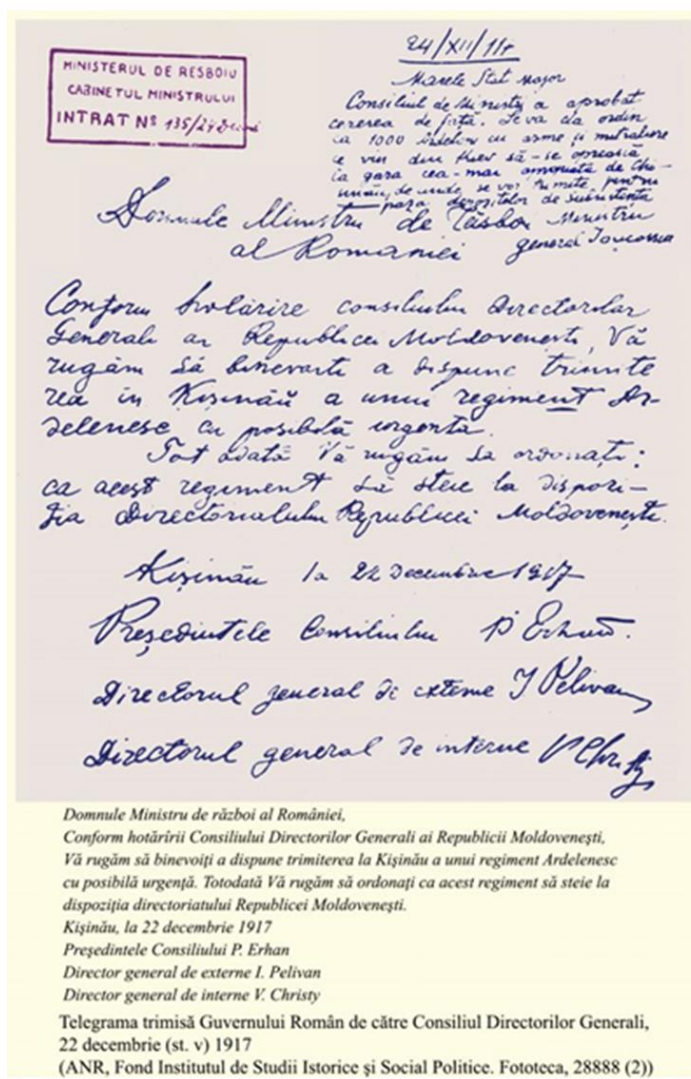 MINISTERUL DE RESBOIU
CABINETUL MINISTRULUI
INTRAT Nº 135/24 Decem
24/XII/917
Marele Stat Major
Consiliul de Miniștri a aprobat
cererea de față. Se va da ordin
ca 1000 Ardeleni cu arme și mitraliere
ce vin din Kiev să-se oprească
la gara cea-mai apropiată de Chi-
șinău, de unde se vor trimite pentru
paza depozitelor de subsistență
Ministru
general Iancovescu
Domnule Ministru de Răsboi
al Romaniei
Conform hotărire consiliului Directorilor
Generali ai Republicei Moldovenești, Vă
rugăm să binevoiti a dispune trimite
rea in Kișinău a unui regiment Ar-
delenesc cu posibilă urgentă.
Tot odată Vă rugăm să ordonați;
ca acest regiment să steie la dispozi-
ția Directorialului Republicei Moldovenești.
Kișinău la 22 Decembrie 1917
Președintele Consiliului P Erhan.
Directorul general de externe I Pelivan
Directorul general de interne V Christy
Domnule Ministru de război al României,
Conform hotărîrii Consiliului Directorilor Generali ai Republicii Moldovenești,
Vă rugăm să binevoiți a dispune trimiterea la Kișinău a unui regiment Ardelenesc
cu posibilă urgență. Totodată Vă rugăm să ordonați ca acest regiment să steie la
dispoziția directoriatului Republicei Moldovenești.
Kișinău, la 22 decembrie 1917
Președintele Consiliului P. Erhan
Director general de externe I. Pelivan
Director general de interne V. Christy
Telegrama trimisă Guvernului Român de către Consiliul Directorilor Generali,
22 decembrie (st. v) 1917
(ANR, Fond Institutul de Studii Istorice și Social Politice. Fototeca, 28888 (2))